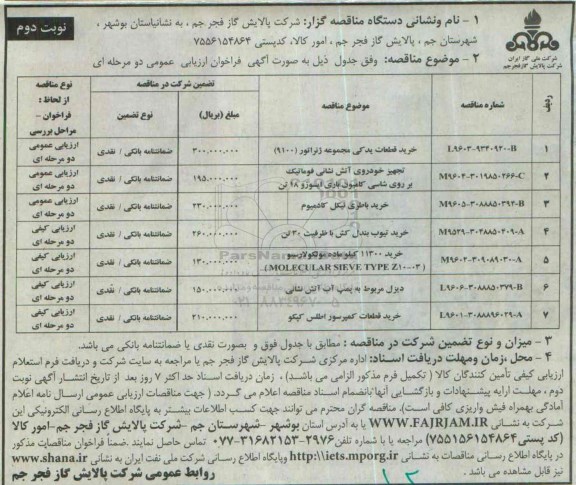 نوبت دوم
۱ - نام ونشانی دستگاه مناقصه گزار: شرکت پالایش گاز فجر جم ، به نشانیاستان بوشهر ،
شهرستان جم ، پالایش گاز فجر جم ، امور کالا، کدپستی ۷۵۵۶۱۵۴۸۶۴
۲ - موضوع مناقصه: وفق جدول ذیل به صورت آگهی فراخوان ارزیابی عمومی دو مرحله ای
شرکت ملی گاز ایران
شرکت پالایش گاز فجر جم
ردیف | شماره مناقصه | موضوع مناقصه | تضمین شرکت در مناقصه | نوع مناقصه از لحاظ : فراخوان - مراحل بررسی
مبلغ (بریال) | نوع تضمین
۱ | L۹۶۰۳-۹۳۴۰۹۲۰-B | خرید قطعات یدکی مجموعه ژنراتور (۹۱۰۰) | ۳۰۰,۰۰۰,۰۰۰ | ضمانتنامه بانکی / نقدی | ارزیابی عمومی دو مرحله ای
۲ | M۹۶۰۲-۳۰۱۹۸۵۰۲۶۶-C | تجهیز خودروی آتش نشانی فوماتیک بر روی شاسی کامیون باری ایسوزو ۱۸ تن | ۱۹۵,۰۰۰,۰۰۰ | ضمانتنامه بانکی / نقدی | ارزیابی عمومی دو مرحله ای
۳ | M۹۶۰۵-۳۰۸۸۸۵۰۳۹۴-B | خرید باطری نیکل کادمیوم | ۲۳۰,۰۰۰,۰۰۰ | ضمانتنامه بانکی / نقدی | ارزیابی عمومی دو مرحله ای
۴ | M۹۵۲۹-۳۰۲۸۸۵۰۲۰۹۰-A | خرید تیوب بندل کش با ظرفیت ۳۰ تن | ۲۶۰,۰۰۰,۰۰۰ | ضمانتنامه بانکی / نقدی | ارزیابی کیفی دو مرحله ای
۵ | M۹۶۰۲-۳۰۹۰۸۹۰۳۰۰-A | خرید ۱۱۳۰۰ کیلو ماده مولکولارسیو (MOLECULAR SIEVE TYPE Z۱۰-۰۳) | ۱۳۰,۰۰۰,۰۰۰ | ضمانتنامه بانکی / نقدی | ارزیابی کیفی دو مرحله ای
۶ | L۹۶۰۶-۳۰۸۸۸۵۰۳۷۹-B | دیزل مربوط به پمپ آب آتش نشانی | ۱۵۰,۰۰۰,۰۰۰ | ضمانتنامه بانکی / نقدی | ارزیابی کیفی دو مرحله ای
۷ | L۹۶۰۱-۳۰۸۸۸۹۶۰۲۹-A | خرید قطعات کمپرسور اطلس کپکو | ۲۱۰,۰۰۰,۰۰۰ | ضمانتنامه بانکی / نقدی | ارزیابی کیفی دو مرحله ای
۳ - میزان و نوع تضمین شرکت در مناقصه : مطابق با جدول فوق و بصورت نقدی یا ضمانتنامه بانکی می باشد.
۴ - محل ،زمان ومهلت دریافت اسناد: اداره مرکزی شرکت پالایش گاز فجر جم یا مراجعه به سایت شرکت و دریافت فرم استعلام
ارزیابی کیفی تأمین کنندگان کالا ( تکمیل فرم مذکور الزامی می باشد) ، زمان دریافت اسناد حد اکثر ۷ روز بعد از تاریخ انتشار آگهی نوبت
دوم ، مهلت ارایه پیشنهادات و بازگشایی آنها بانضمام اسناد مناقصه اعلام می گردد. ( جهت مناقصات ارزیابی عمومی ارسال نامه اعلام
آمادگی بهمراه فیش واریزی کافی است). مناقصه گران محترم می توانند جهت کسب اطلاعات بیشتر به پایگاه اطلاع رسانی الکترونیکی این
شرکت به نشانی WWW.FAJRJAM.IR یا به آدرس استان بوشهر -شهرستان جم -شرکت پالایش گاز فجر جم-امور کالا
(کد پستی۷۵۵۱۵۶۱۵۴۸۶۴) مراجعه یا با شماره تلفن ۲۹۷۶-۳۱۶۸۲۱۵۳-۰۷۷ تماس حاصل نمایند .ضمناً فراخوان مناقصات مذکور
در پایگاه اطلاع رسانی مناقصات به نشانی http:\\iets.mporg.ir وپایگاه اطلاع رسانی شرکت ملی نفت ایران به نشانی www.shana.ir
نیز قابل مشاهده می باشد .
روابط عمومی شرکت پالایش گاز فجر جم